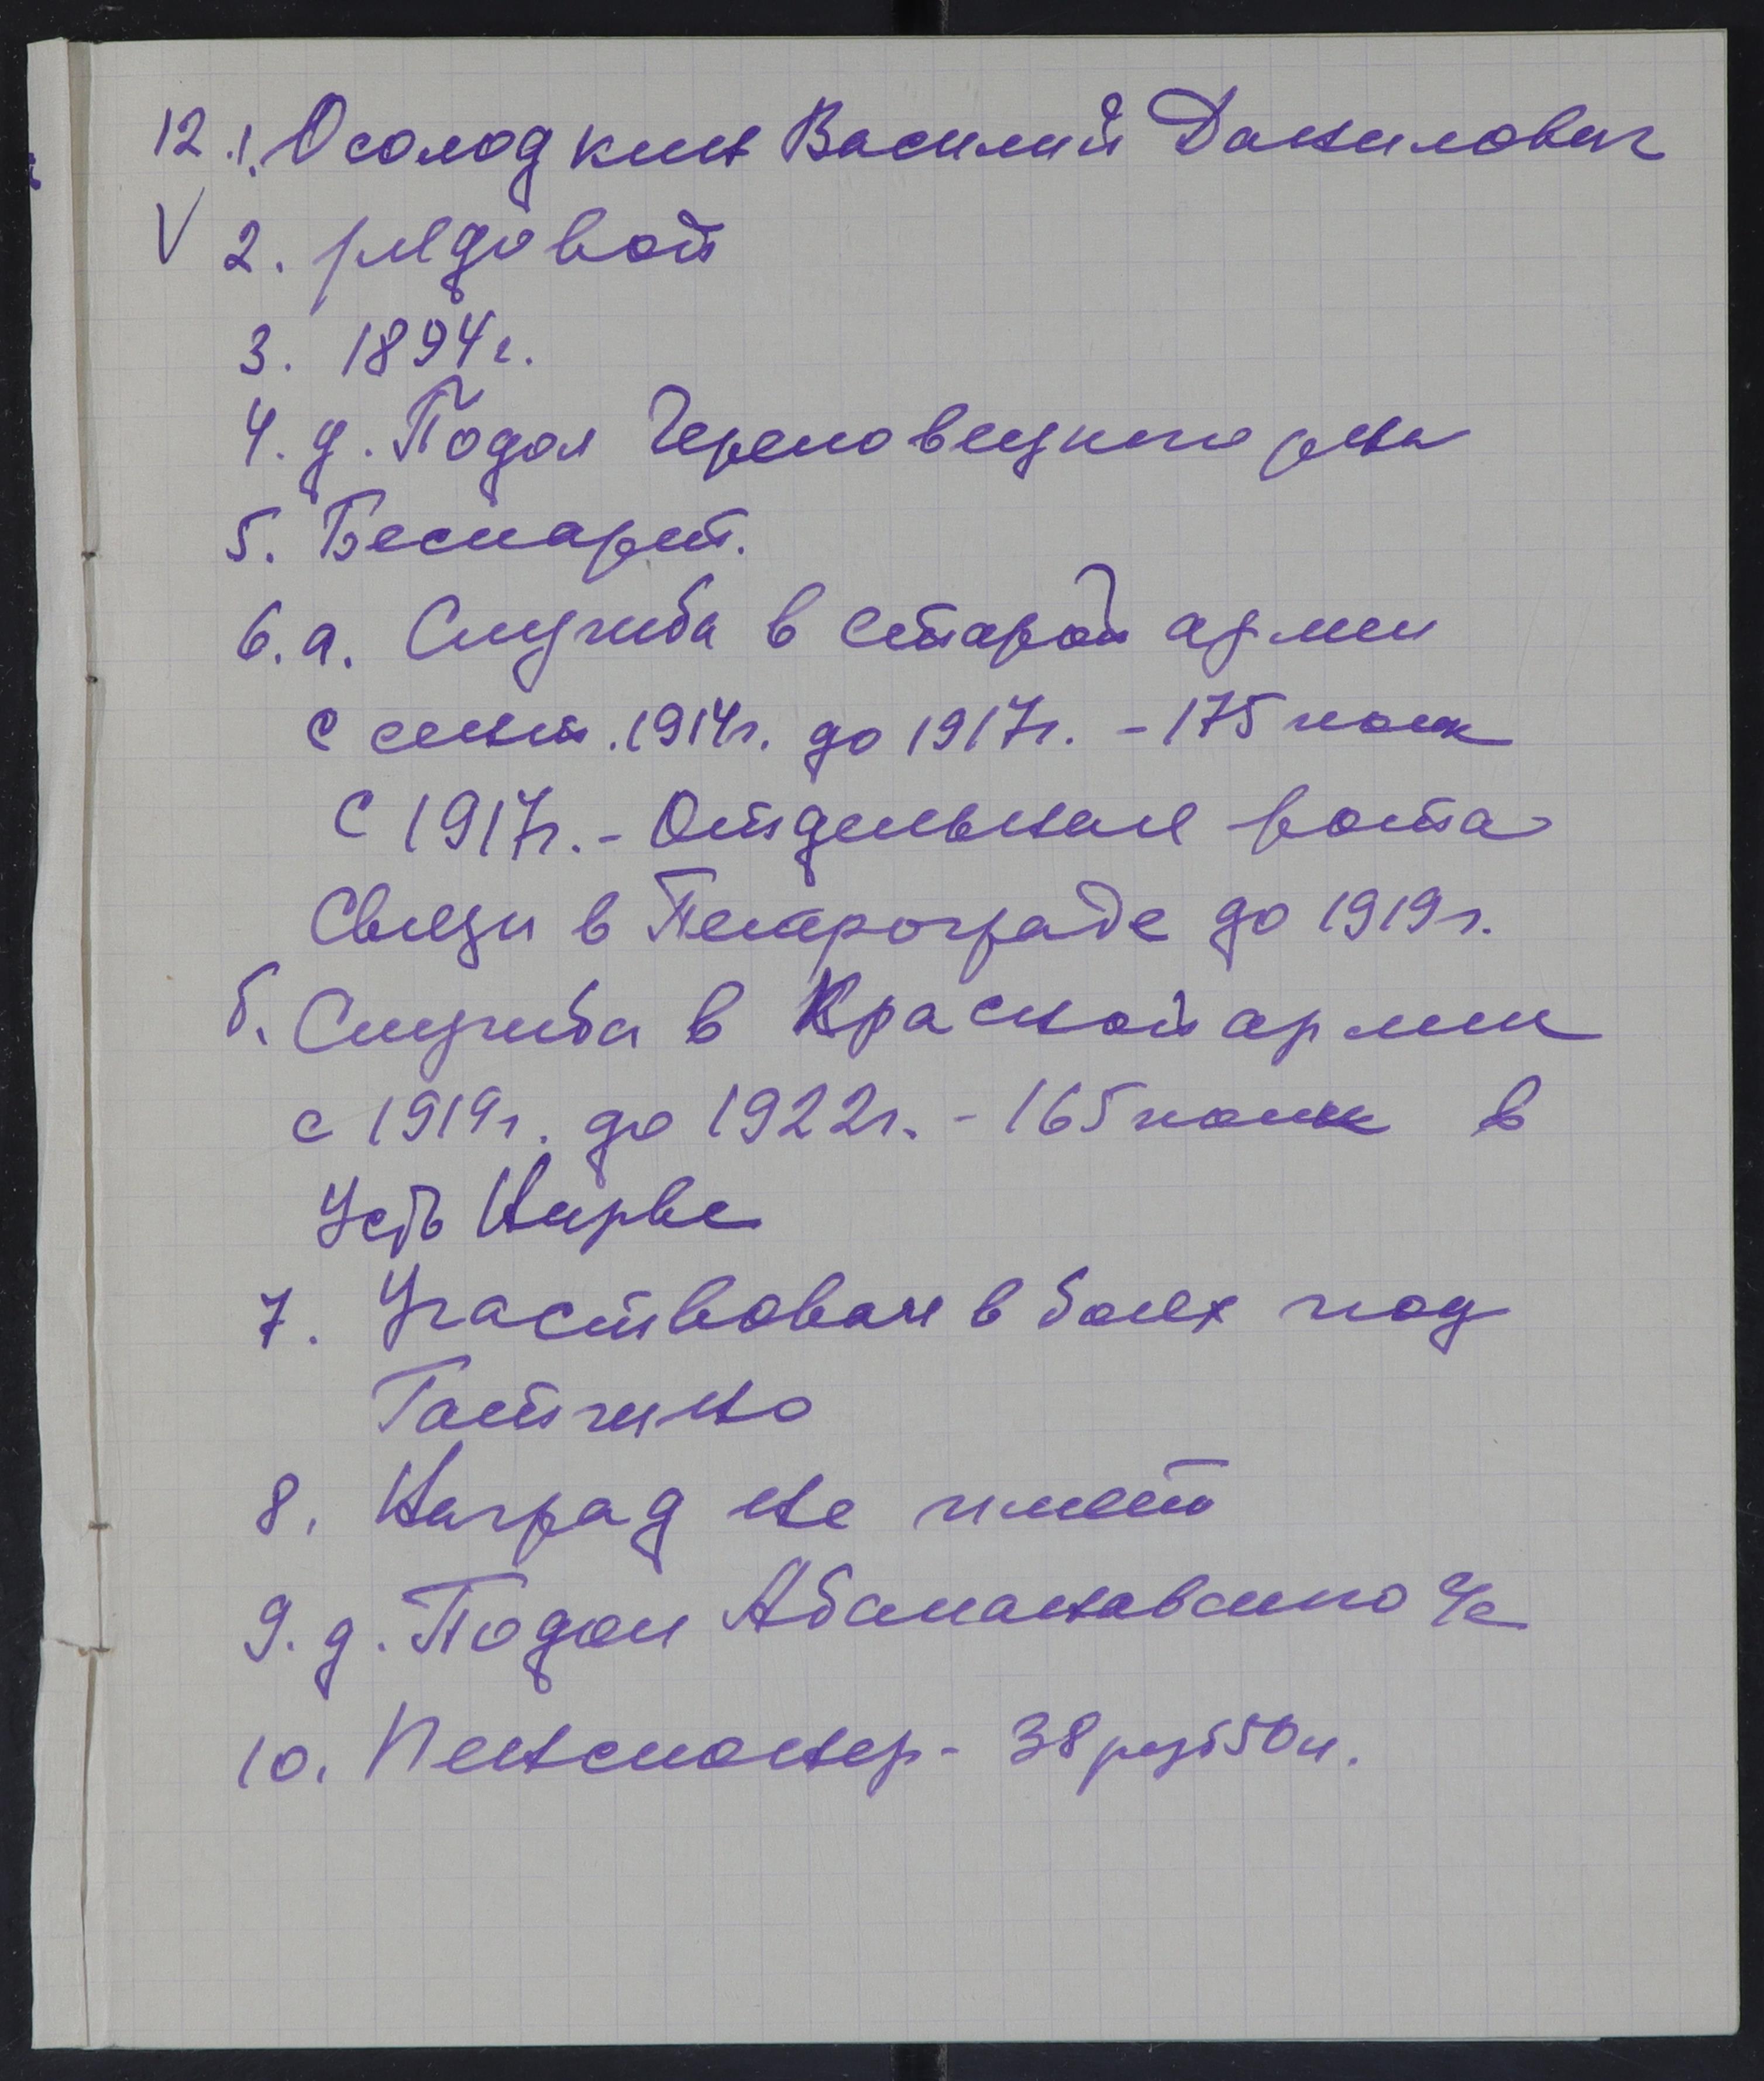 12.1. Осолодкин Василий Данилович
V 2. рядовой
3. 1894г.
4. д. Подол Череповецкого р-на
5. Беспарт.
6. а. Служба в старой армии
с сент. 1914г. до 1917г. - 175 полк
С 1917г. - Отдельная рота
Связи в Петрограде до 1919г.
б. Служба в Красной армии
с 1919г. до 1922г. - 165 полк в
Усть Нарве
7. Участвовал в боях под
Гатчино
8. Наград не имеет
9. д. Подол Абакановского с/с
10. Пенсионер - 38 руб 50 к.